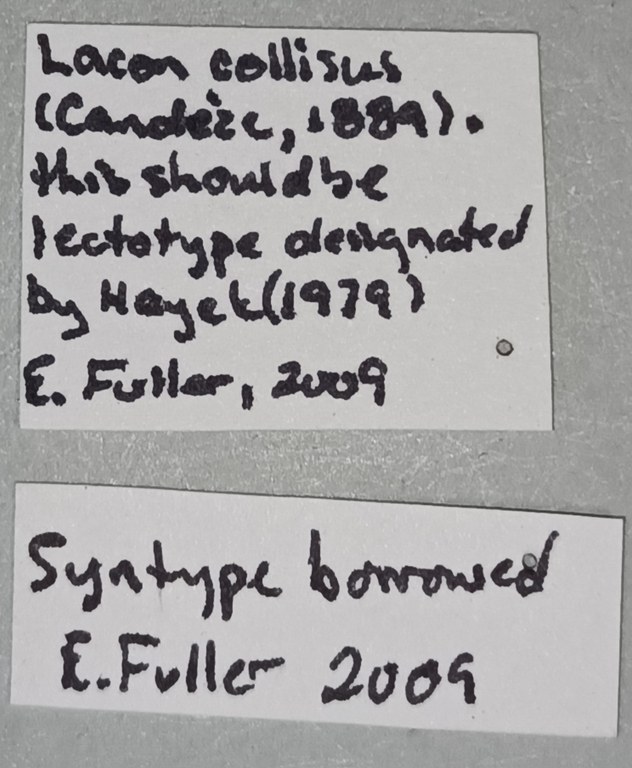 Lacon collisus
(Candèze, 1889).
this should be
lectotype designated
by Hayek (1979)
E. Fuller, 2009
Syntype borrowed
E. Fuller 2009